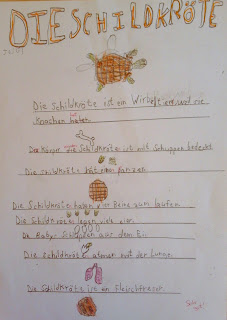 DIE SCHILDKRÖTE
Die Schildkröte ist ein Wirbeltier, weil sie
Knochen haben
Der Körper die Schildkröte ist mit Schuppen bedeckt
Die Schildkröte hat einen panzer
Die Schildkröte haben vier Beine zum laufen
Die Schildkröten legen viele eier.
Die Baby schlüpfen aus dem Ei
Die Schildkröte atmet mit der Lunge.
Die Schildkröte ist ein Fleischfresser